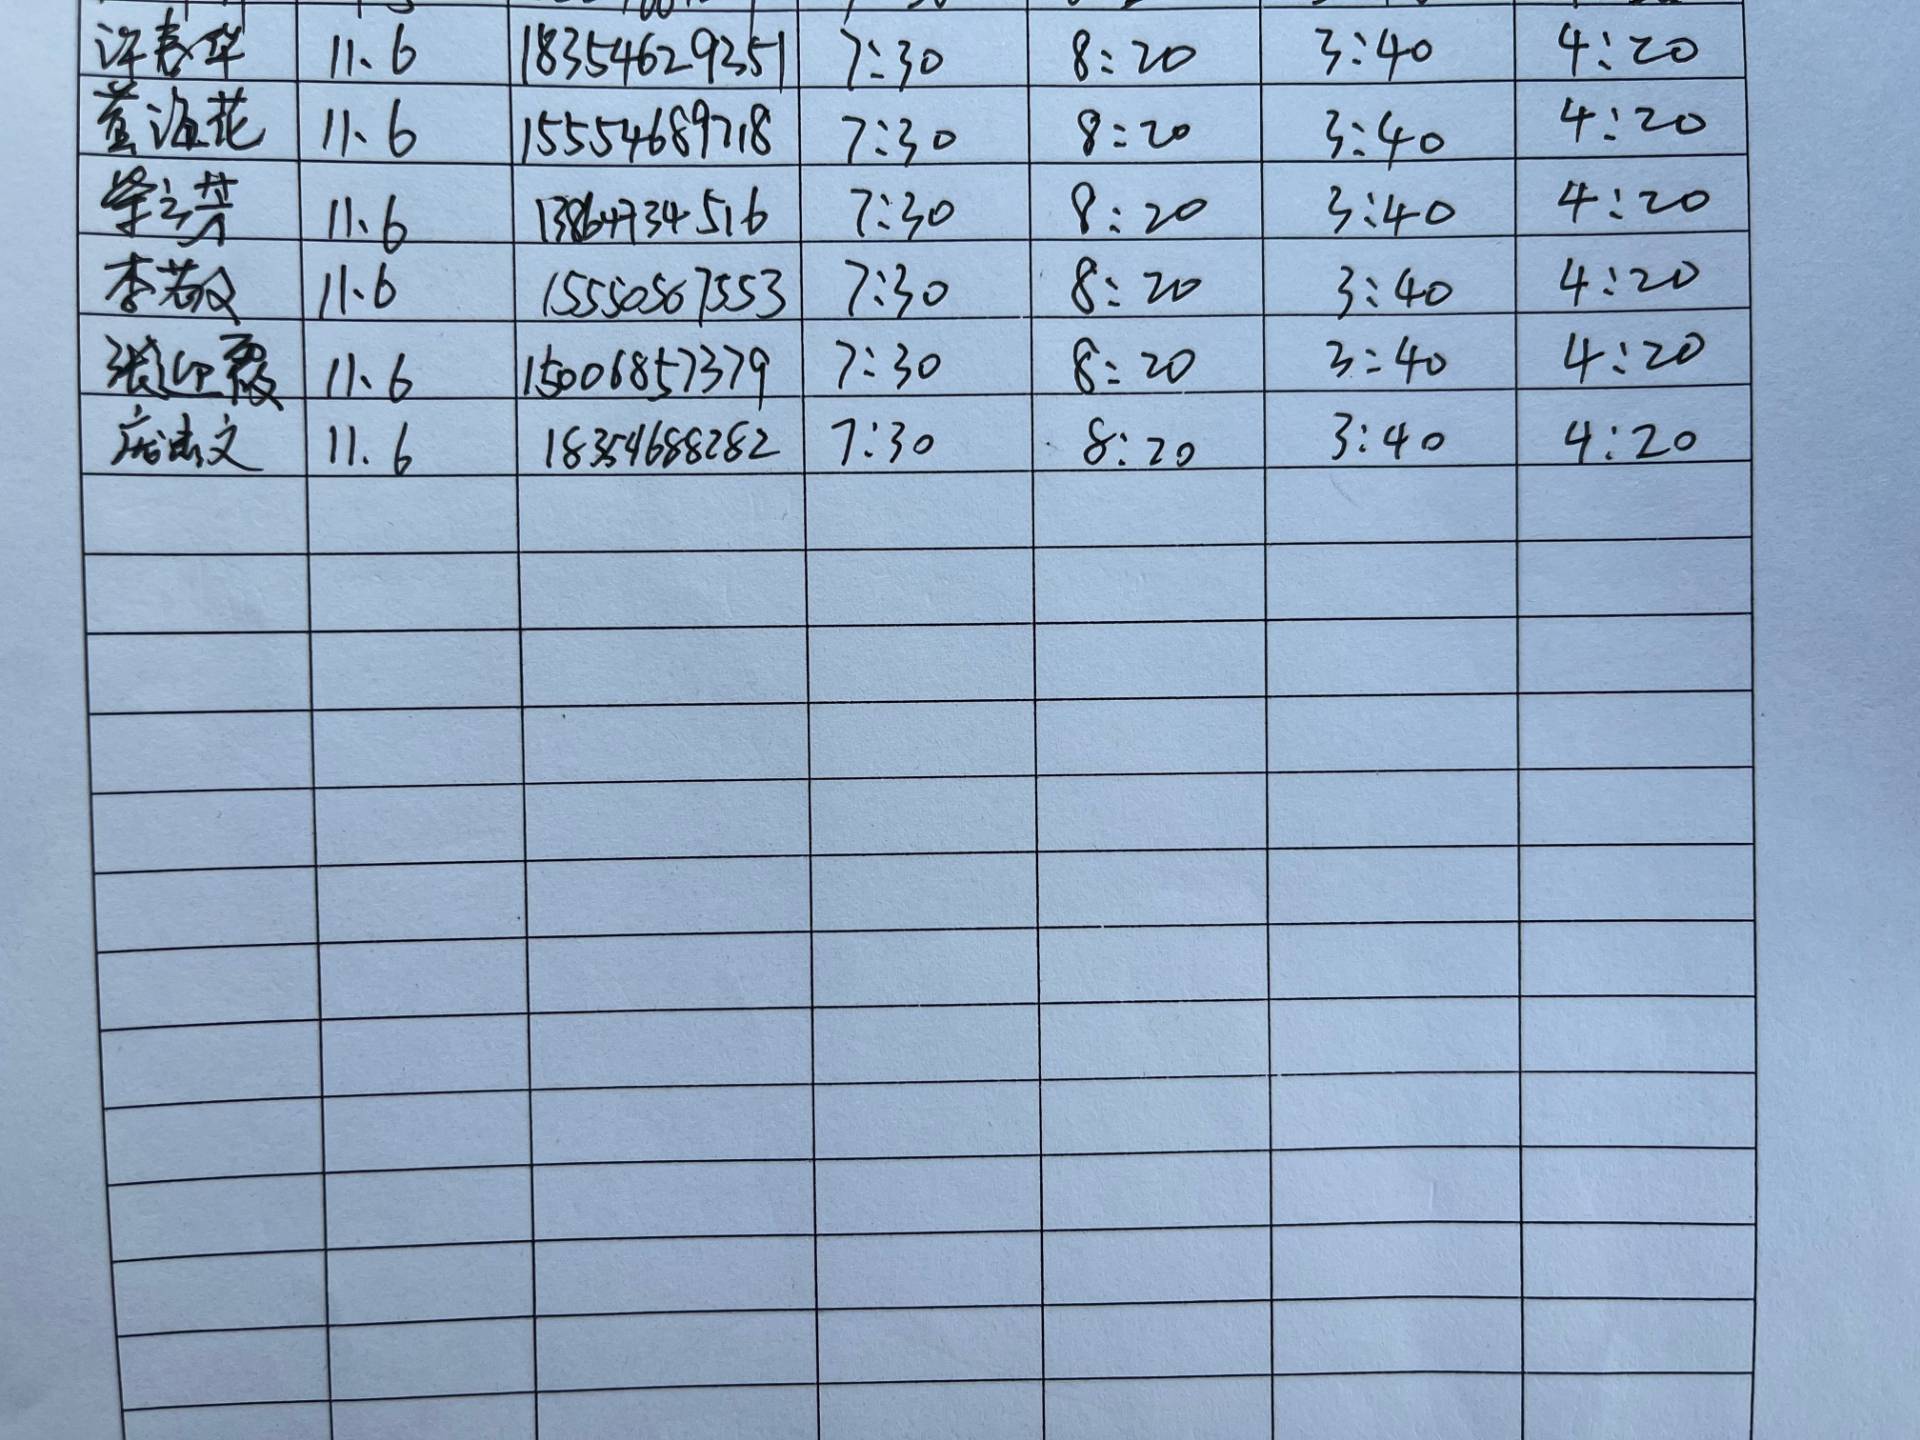 许春华 11.6 18354629351 7:30 8:20 3:40 4:20
黄海花 11.6 15554689718 7:30 8:20 3:40 4:20
11.6 13864734516 7:30 8:20 3:40 4:20
李若敬 11.6 15550567553 7:30 8:20 3:40 4:20
张迎霞 11.6 15006857379 7:30 8:20 3:40 4:20
11.6 18354688282 7:30 8:20 3:40 4:20